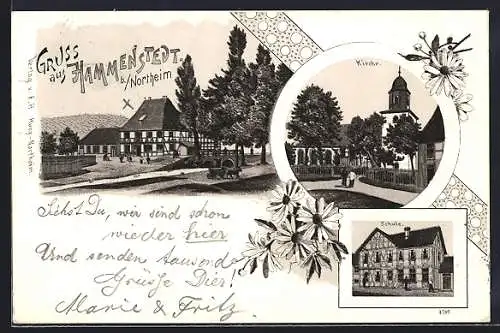 Gruss
aus HAMMENSTEDT.
b./Northeim
X
Kirche.
Schule.
Siehst Du, wir sind schon
wieder hier
Und senden tausend
Grüsse Dir!
Marie & Fritz